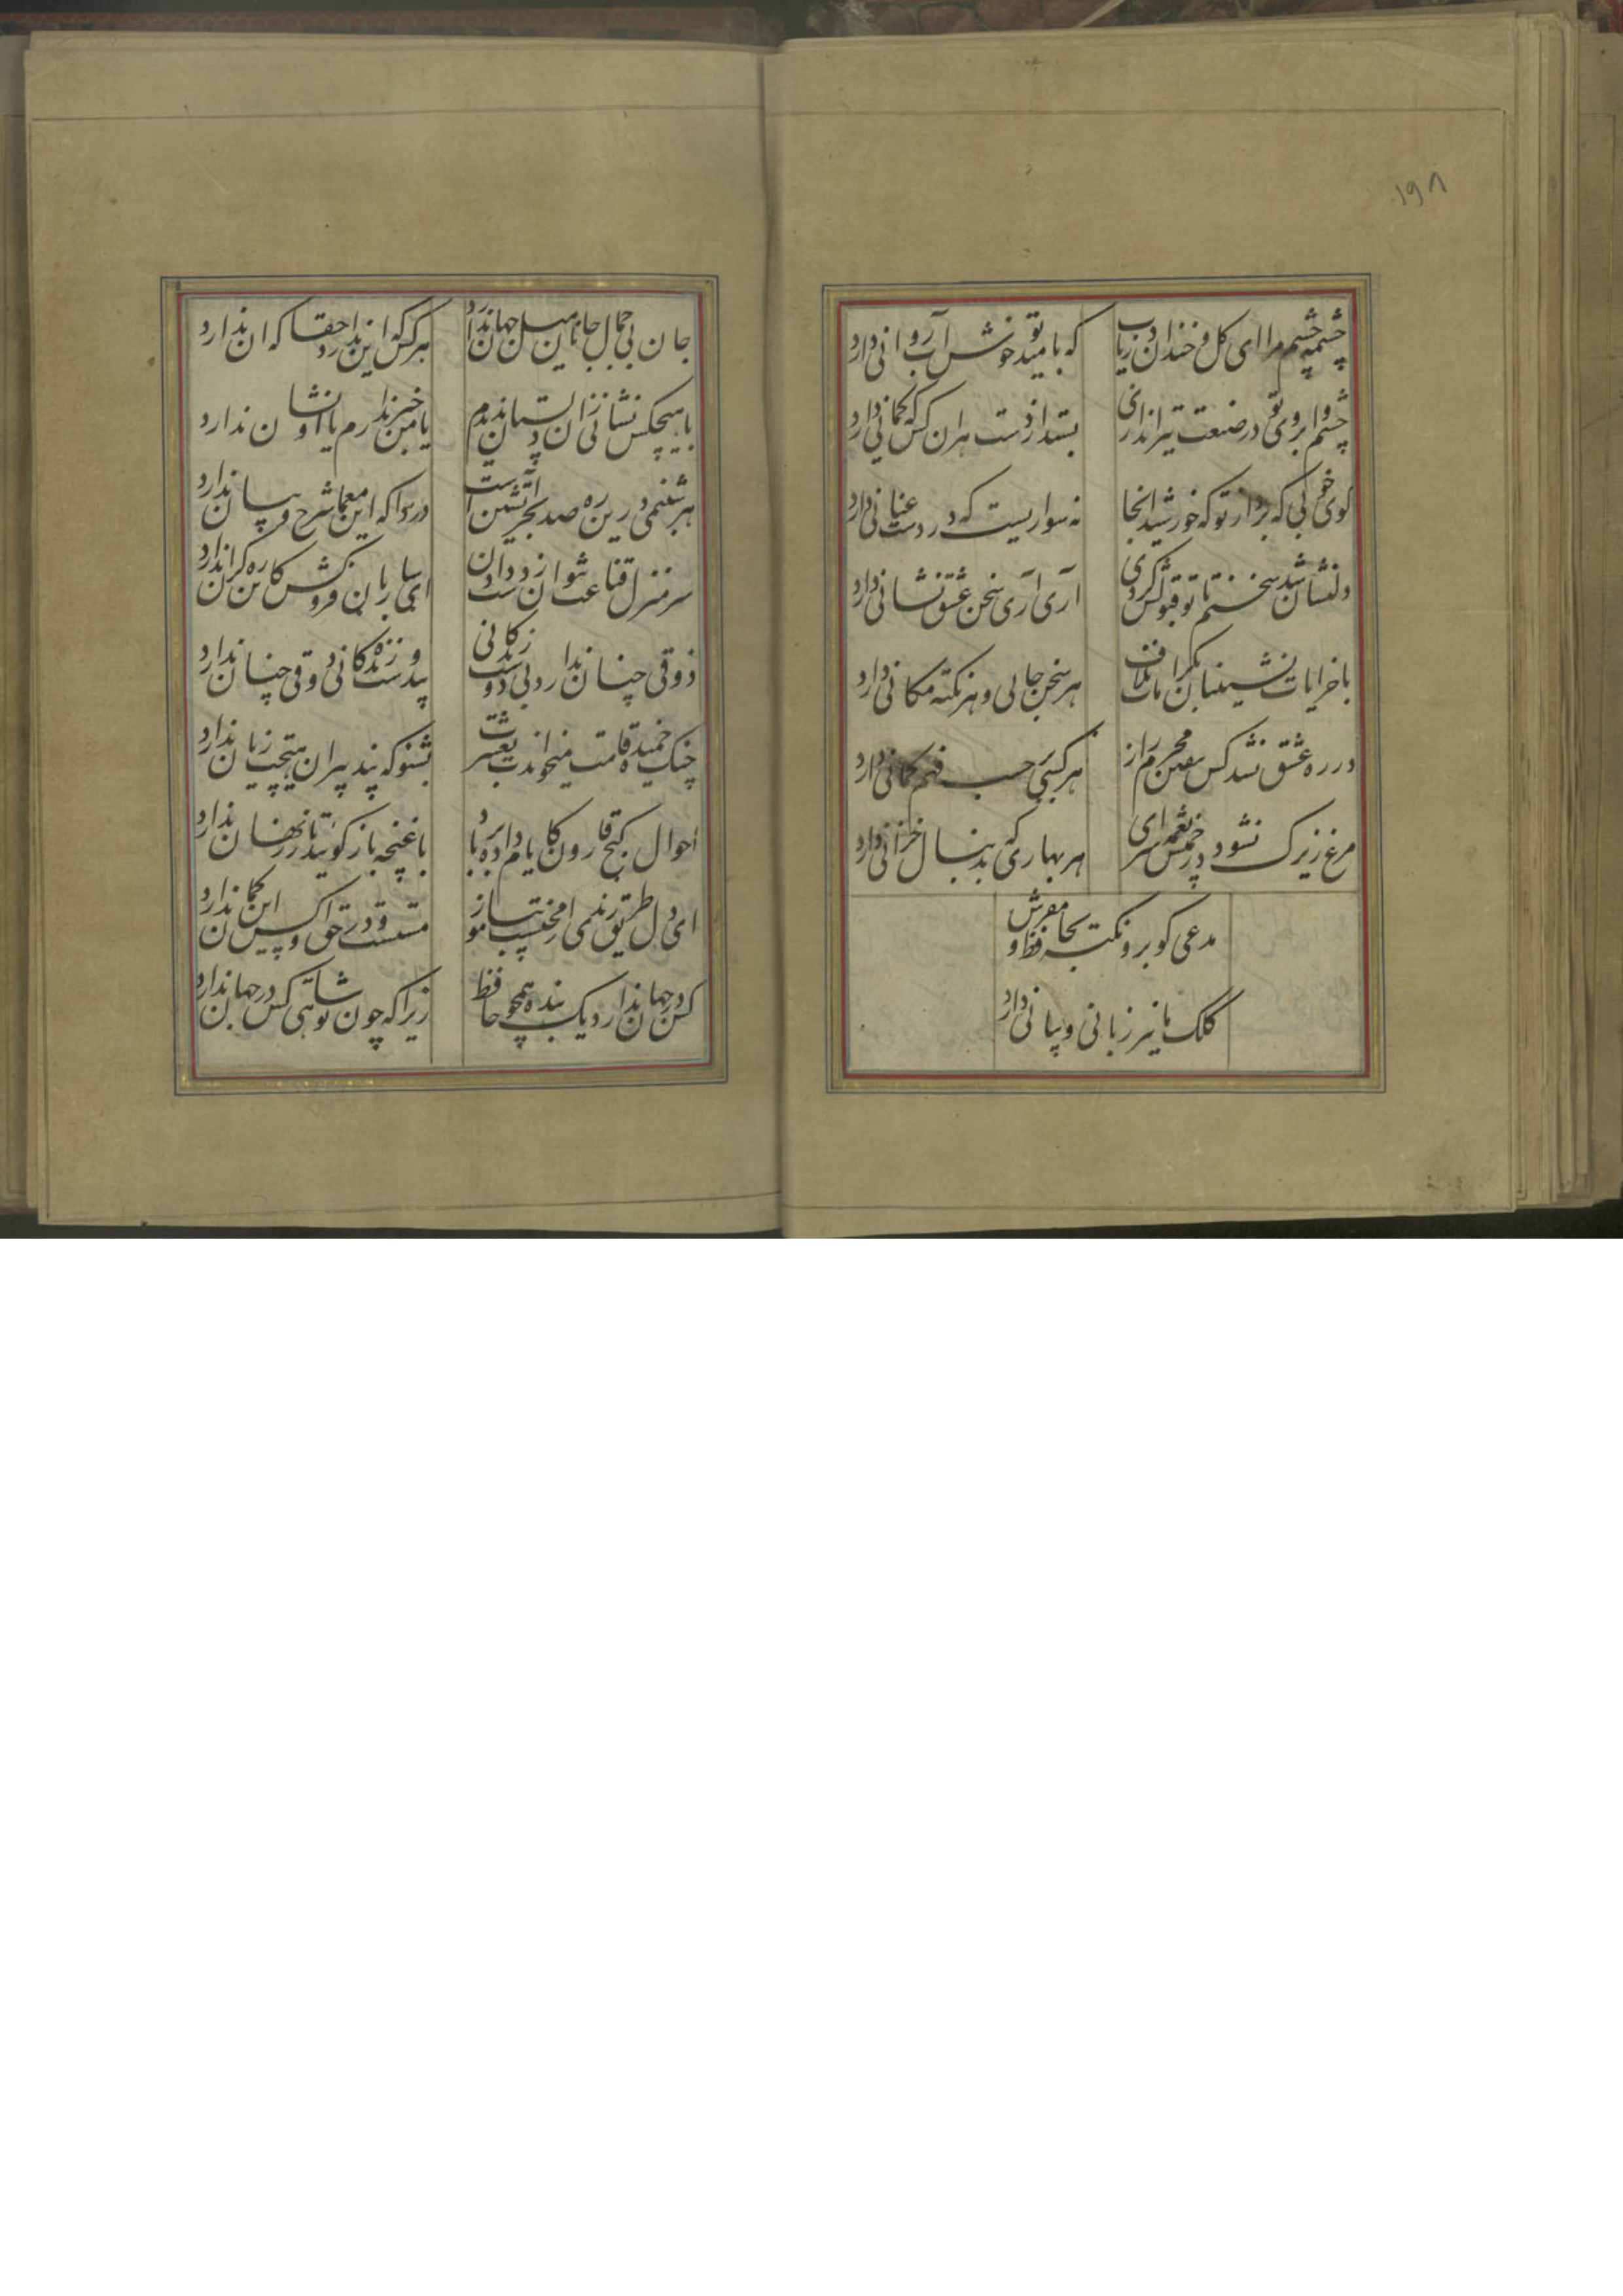 ۱۹۸
چشمه چشم مرا ای کل خندان دریاب
که بامید تو خوش آب روانی دارد
چشم و ابروی تو در صنعت تیراندازی
بستد از دست هر ان کس که کمانی دارد
کوی خوبی که برد از تو که خورشید انجا
نه سواریست که در دست عنانی دارد
دلنشان شد سخنم تا تو قبولش کردی
آری آری سخن عشق نشانی دارد
با خرابات نشینان ز کرامات ملاف
هر سخن جایی و هر نکته مکانی دارد
در ره عشق نشد کس بیقین محرم راز
هر کسی بر حسب فهم کمانی دارد
مرغ زیرک نشود در چمنش نغمه سرای
هر بهاری که بدنبال خزانی دارد
مدعی کو برو و نکته بحافظ مفروش
کلک ما نیز زبانی و بیانی دارد
جان بی جمال جانان میل جهان ندارد
هر کس که این ندارد حقا که ان ندارد
با هیچکس نشانی زان دلستان ندیدم
یا من خبر ندارم یا او نشان ندارد
هر شبنمی درین ره صد بحر آتشین است
دردا که این معما شرح و بیان ندارد
سر منزل قناعت نتوان ز دست دادن
ای ساربان فروکش کاین ره کران ندارد
ذوقی چنان ندارد بی دوست زندکانی
بیدوست زندکانی ذوقی چنان ندارد
چنک خمیده قامت میخواندت بعشرت
بشنو که پند پیران هیچت زیان ندارد
احوال کنج قارون کایام داد بر باد
با غنچه باز کوئید تا زر نهان ندارد
ای دل طریق رندی از محتسب بیاموز
مستست و در حق او کس این کمان ندارد
کس در جهان ندارد یک بنده همچو حافظ
زیرا که چون تو شاهی کس در جهان ندارد